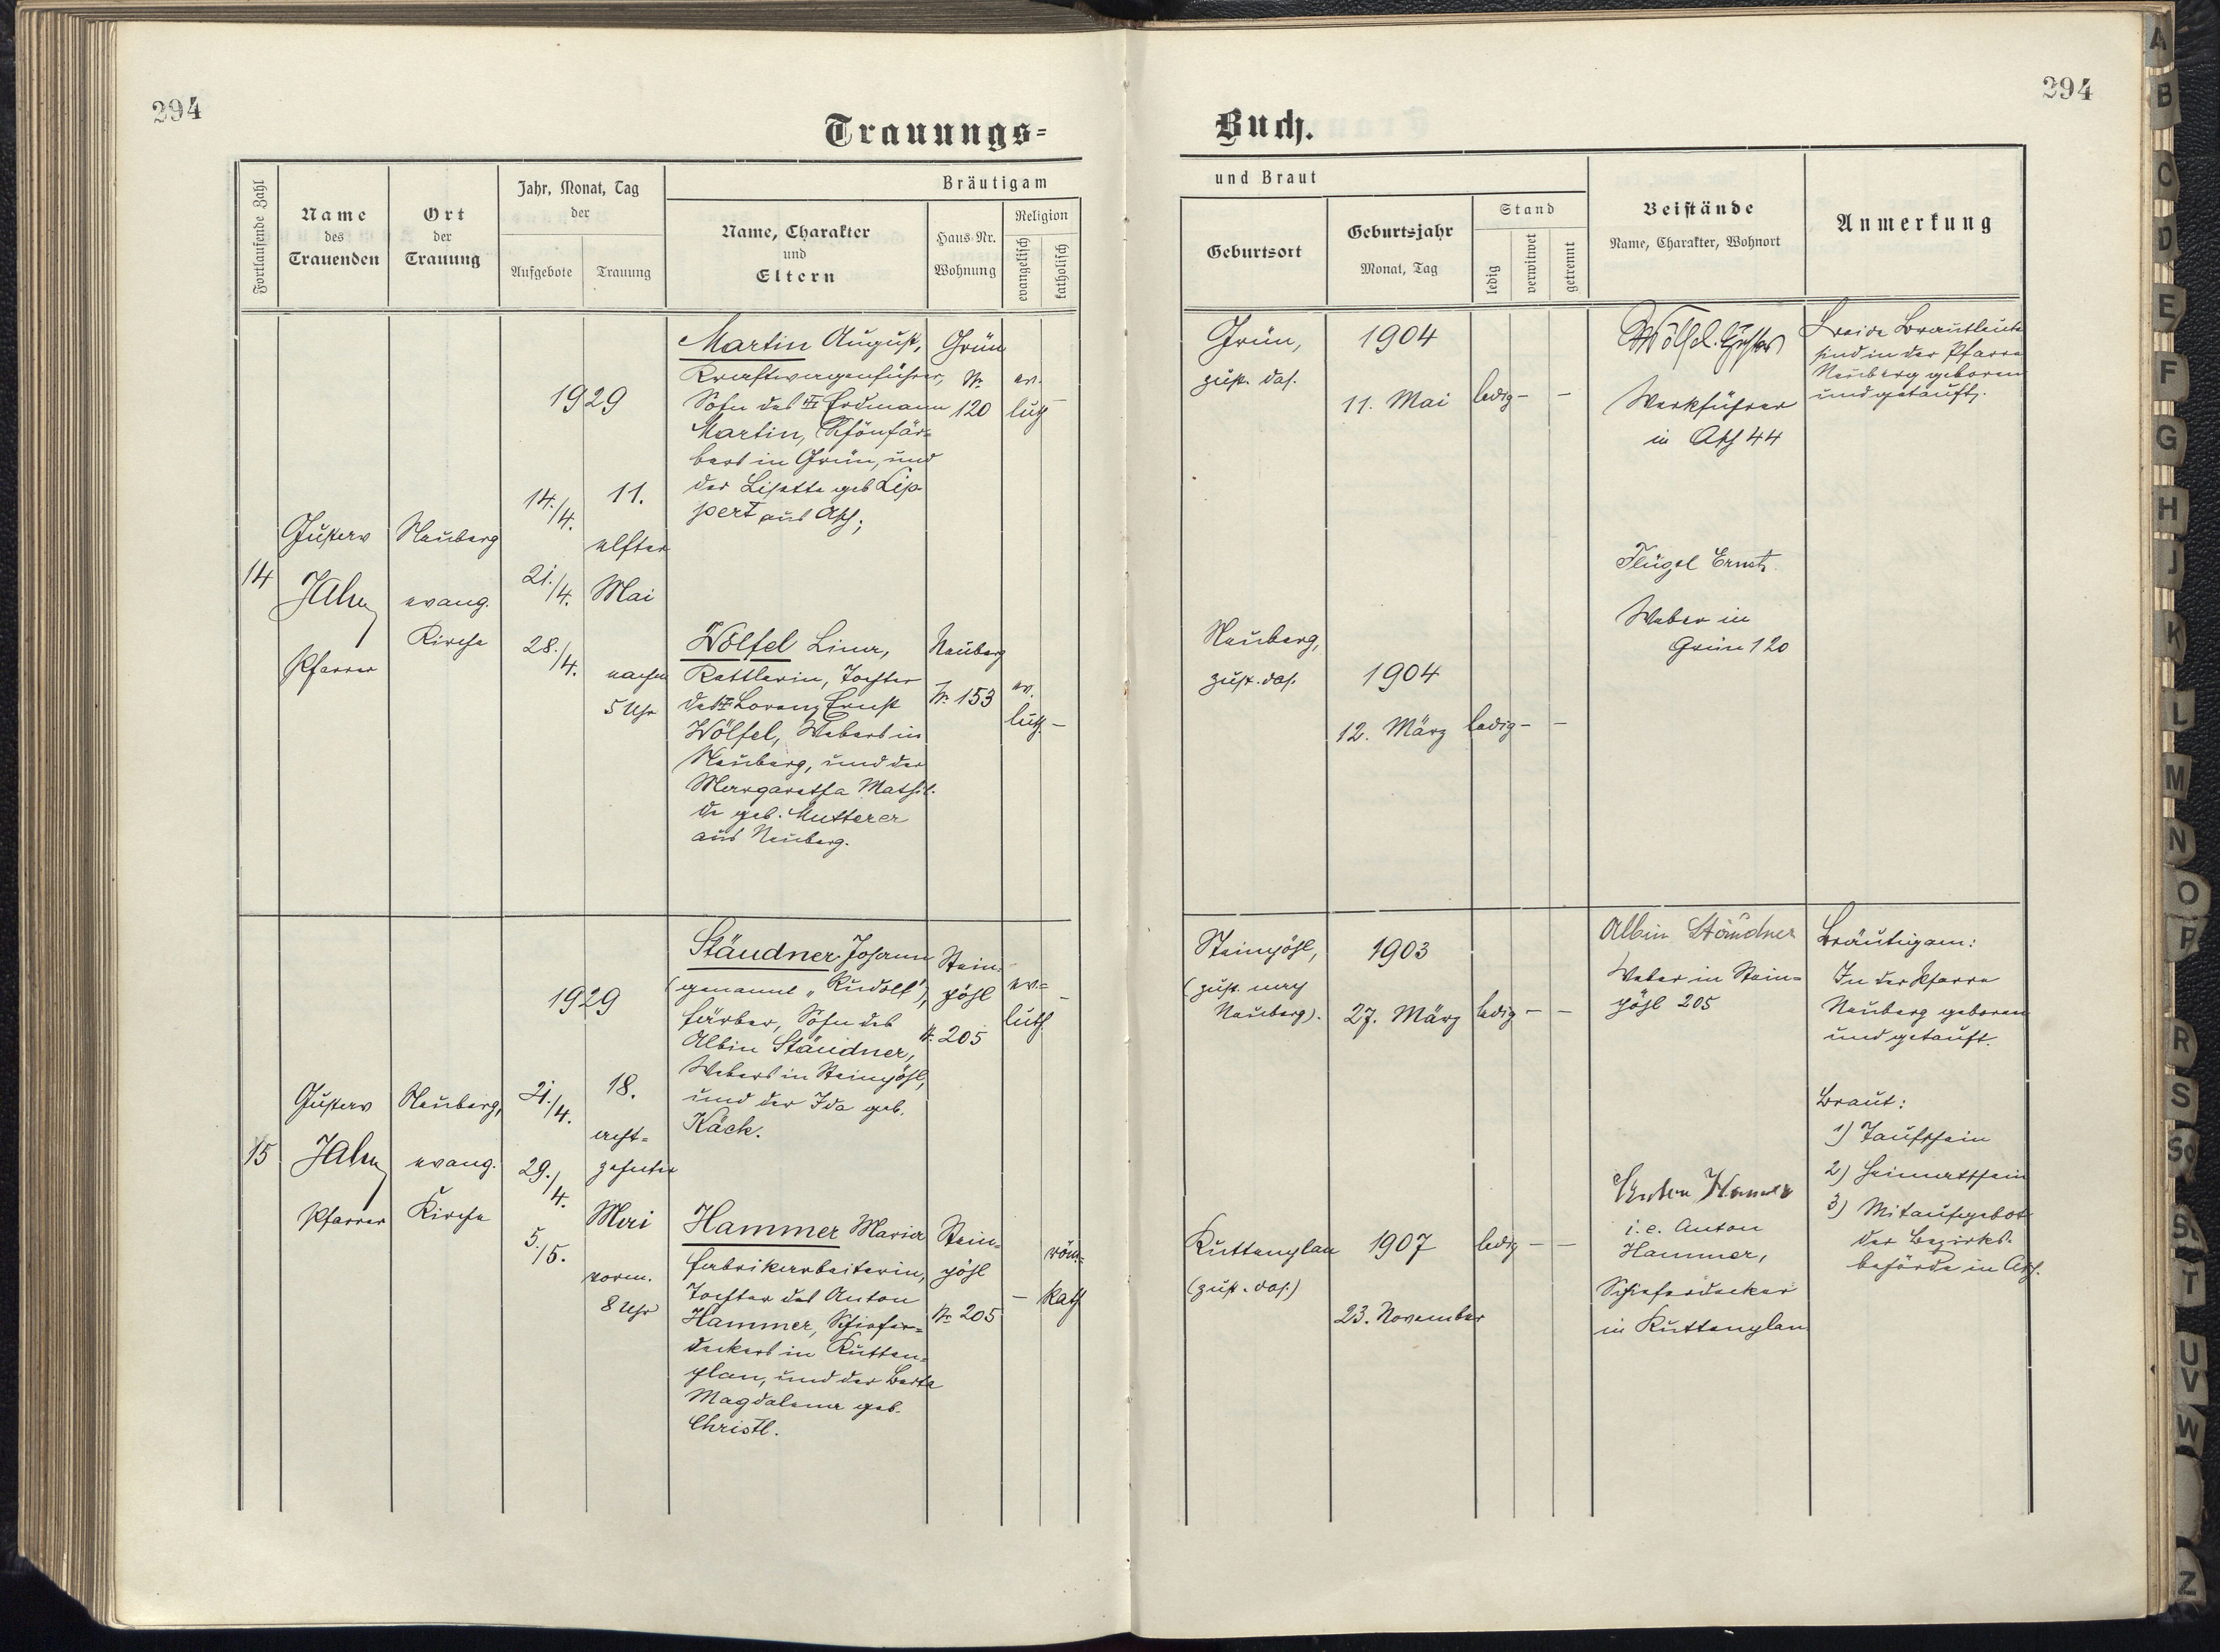 294
294
Trauungs=
Buch.
Fortlaufende Zahl
Name
des
Trauenden
Ort
der
Trauung
Jahr, Monat, Tag
der
Aufgebote
Trauung
Bräutigam
Name, Charakter
und
Eltern
Haus-Nr.
Wohnung
Religion
evangelisch
katholisch
und Braut
Geburtsort
Geburtsjahr
Monat, Tag
Stand
ledig
verwitwet
getrennt
Beistände
Name, Charakter, Wohnort
Anmerkung
14
Gustav
Jahn
Pfarrer
Neuberg
evang.
Kirche
1929
14./4.
21./4.
28./4.
11.
elfter
Mai
nachm
5 Uhr
Martin August,
Kraftwagenführer,
Sohn des Erdmann
Martin, Schönfär=
bers in Grün, und
der Lisette geb. Lip-
pert aus Asch;
Grün
Nr.
120
ev.
luth
–
Grün,
zust. das.
1904
11. Mai
ledig – –
Wölfel
Werkführer
in Asch 44
Beide Brautleute
sind in der Pfarre
Neuberg geboren
und getauft.
Wölfel Lina,
Kettlerin, Tochter
des Lorenz Ernst
Wölfel, Webers in
Neuberg, und der
Margaretha Mathil-
de geb. Mutterer
aus Neuberg.
Neuberg
Nr. 153
ev.
luth. –
Neuberg,
zust. das.
1904
12. März
ledig – –
Flügel Ernst
Weber in
Grün 120
15
Gustav
Jahn
Pfarrer
Neuberg,
evang.
Kirche
1929
21./4.
29./4.
5./5.
18.
acht=
zehnter
Mai
vorm.
8 Uhr
Stäudner Johann
(genannt „Rudolf"),
Färber, Sohn des
Albin Stäudner,
Webers in Steinpöhl,
und der Ida geb.
Käck.
Stein=
pöhl
Nr. 205
ev.=
luth.
–
Steinpöhl,
(zust. nach
Neuberg).
1903
27. März
ledig – –
Albin Stäudner
Weber in Stein=
pöhl 205
Bräutigam:
In der Pfarre
Neuberg geboren
und getauft.
Braut:
1) Taufschein
2) Heimatschein
3) Mitaufgebot
der Bezirks-
behörde in Asch.
Hammer Maria
Fabrikarbeiterin,
Tochter des Anton
Hammer, Schiefer=
deckers in Kutten=
plan, und der Berta
Magdalena geb.
Christl.
Stein=
pöhl
Nr. 205
–
röm.=
kath.
Kuttenplan
(zust. das.)
1907
23. November
ledig – –
Anton Hammer
i. e. Anton
Hammer,
Schieferdecker
in Kuttenplan
A
B
C
D
E
F
G
H
J
K
L
M
N
O
P
R
S
Sch
St
T
U
V
W
Z